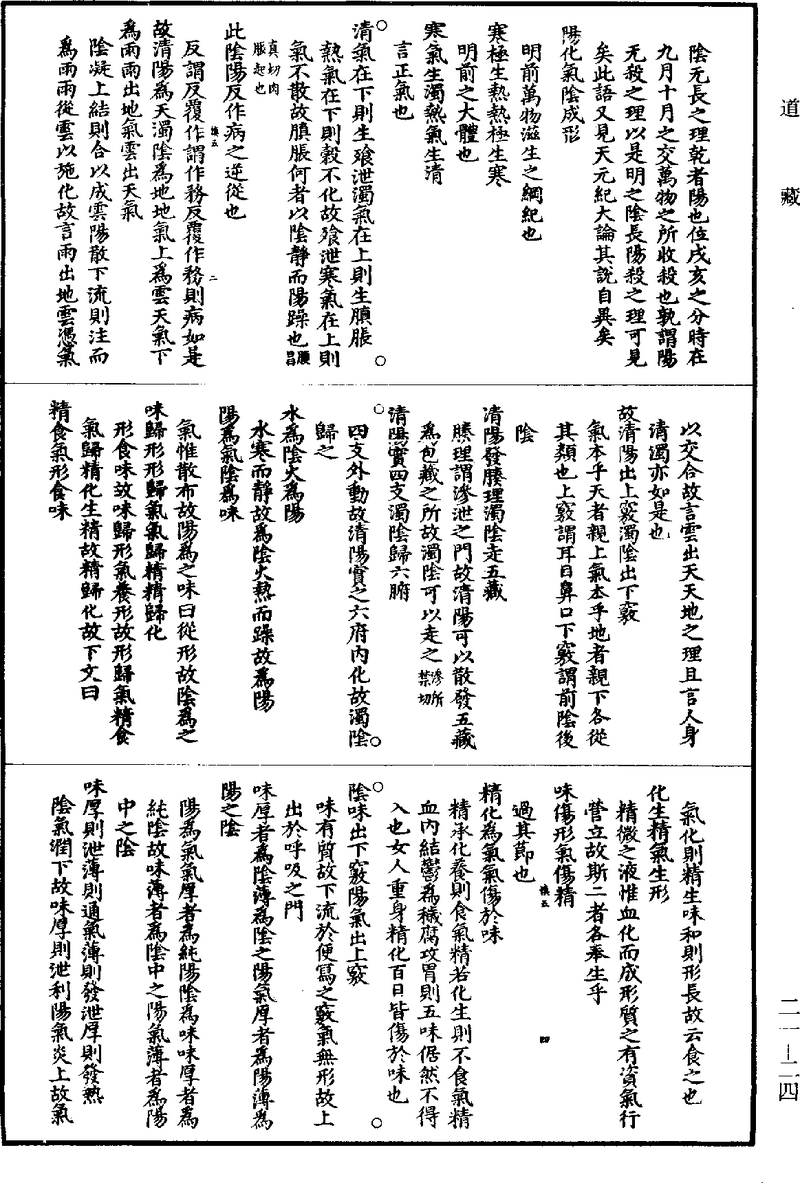 道藏
陰无長之理乾者陽也位戌亥之分時在
九月十月之交萬物之所收殺也孰謂陽
无殺之理以是明之陰長陽殺之理可見
矣此語又見天元紀大論其說自異矣
陽化氣陰成形
明前萬物滋生之綱紀也
寒極生熱熱極生寒
明前之大體也
寒氣生濁熱氣生清
言正氣也
清氣在下則生飱泄濁氣在上則生䐜脹
熱氣在下則穀不化故飱泄寒氣在上則
氣不散故䐜脹何者以陰靜而陽躁也䐜昌
真切肉
脹起也
此陰陽反作病之逆從也
慎五
二
反謂反覆作謂作務反覆作務則病如是
故清陽為天濁陰為地地氣上為雲天氣下
為雨雨出地氣雲出天氣
陰凝上結則合以成雲陽散下流則注而
為雨雨從雲以施化故言雨出地雲憑氣
以交合故言雲出天天地之理且言人身
清濁亦如是也
故清陽出上竅濁陰出下竅
氣本乎天者親上氣本乎地者親下各從
其類也上竅謂耳目鼻口下竅謂前陰後
陰
清陽發腠理濁陰走五藏
腠理謂滲泄之門故清陽可以散發五藏
為包藏之所故濁陰可以走之滲所禁切
清陽實四支濁陰歸六腑
四支外動故清陽實之六府內化故濁陰
歸之
水為陰火為陽
水寒而靜故為陰火熱而躁故為陽
陽為氣陰為味
氣惟散布故陽為之味曰從形故陰為之
味歸形形歸氣氣歸精精歸化
形食味故味歸形氣養形故形歸氣精食
氣歸精化生精故精歸化故下文曰
精食氣形食味
氣化則精生味和則形長故云食之也
化生精氣生形
精微之液惟血化而成形質之有資氣行
營立故斯二者各奉生乎
味傷形氣傷精
過其節也
慎五
四
精化為氣氣傷於味
精承化養則食氣精若化生則不食氣精
血內結鬱為穢腐攻胃則五味倨然不得
入也女人重身精化百日皆傷於味也
陰味出下竅陽氣出上竅
味有質故下流於便寫之竅氣無形故上
出於呼吸之門
味厚者為陰薄為陰之陽氣厚者為陽薄為
陽之陰
陽為氣氣厚者為純陽陰為味味厚者為
純陰故味薄者為陰中之陽氣薄者為陽
中之陰
味厚則泄薄則通氣薄則發泄厚則發熱
陰氣潤下故味厚則泄利陽氣炎上故氣
二一—二四